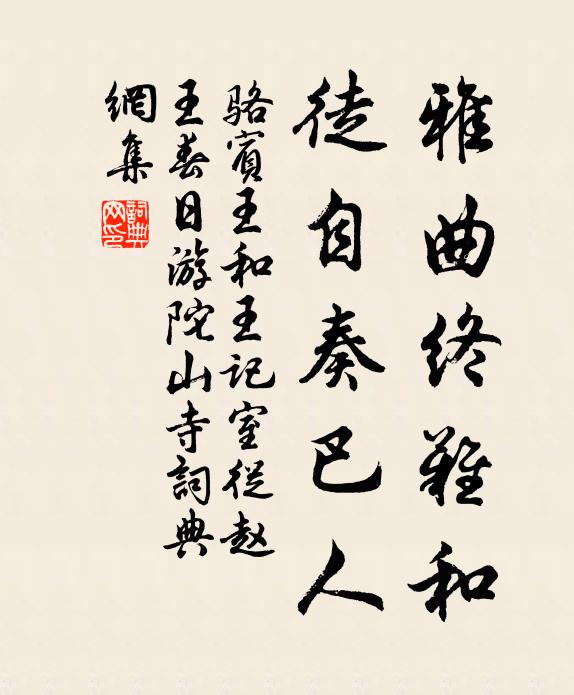 雅曲终難和
徒自奏巴人
骆賓王和王记室從赵
王春日游陀山寺詞典
網集
詞典
网印